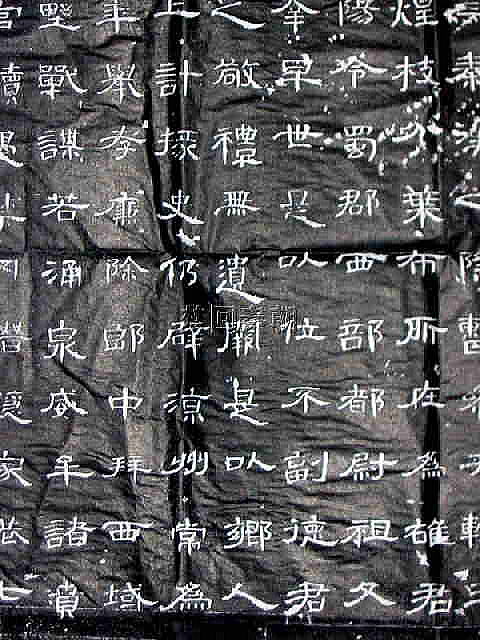 煌枝分葉布所在為雄君
陽令蜀郡西部都尉祖父
幸早世是以位不副德君
之敬禮無遺闕是以鄉人
上計掾史仍辟涼州常為
年舉孝廉除郎中拜西域
野戰謀若涌泉威牟諸賁